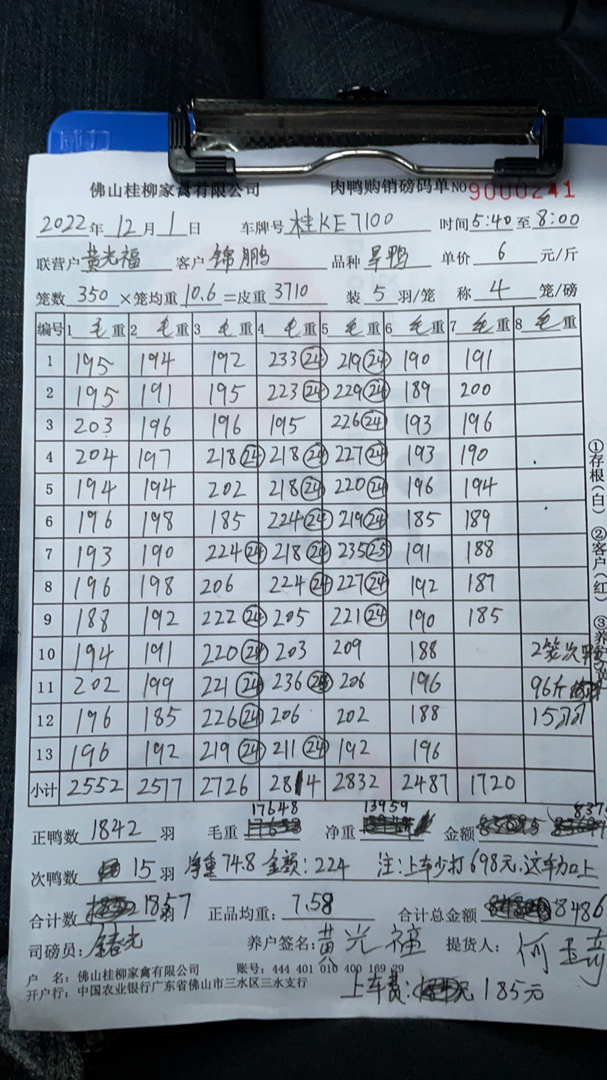 佛山桂柳家禽有限公司 肉鸭购销磅码单 NO 9000241
2022年12月1日 车牌号 桂KE7100 时间5:40至8:00
联营户 黄光福 客户 锦鹏 品种 旱鸭 单价 6 元/斤
笼数 350 ×笼均重 10.6 =皮重 3710 装 5 羽/笼 称 4 笼/磅
编号 1 毛重 2 毛重 3 毛重 4 毛重 5 毛重 6 毛重 7 毛重 8 毛重
1 195 194 192 233(24) 219(24) 190 191
2 195 191 195 223(24) 229(24) 189 200
3 203 196 196 195 226(24) 193 196
4 204 197 218(24) 218(24) 227(24) 193 190
5 194 194 202 218(24) 220(24) 196 194
6 196 198 185 224(24) 219(24) 185 189
7 193 190 224(24) 218(24) 235(25) 191 188
8 196 198 206 224(24) 227(24) 192 187
9 188 192 222(24) 205 221(24) 190 185
10 194 191 220(24) 203 209 188 2笼次
11 202 199 221(24) 236 206 196 96斤
12 196 185 226(24) 206 202 188 15羽
13 196 192 219(24) 211(24) 192 196
小计 2552 2577 2726 2814 2832 2487 1720
正鸭数 1842 羽 毛重 17648 净重 13959 金额 837
次鸭数 15 羽 净重74.8 金额:224 注:上车少打698元,这车加上
合计数 1857 羽 正品均重: 7.58 合计总金额 8486
司磅员: 养户签名: 黄光福 提货人: 何
户 名: 佛山桂柳家禽有限公司 账号: 444 401 010 400 169 29
开户行: 中国农业银行广东省佛山市三水区三水支行
上车费: 185元
①存根(白) ②客户(红) ③养